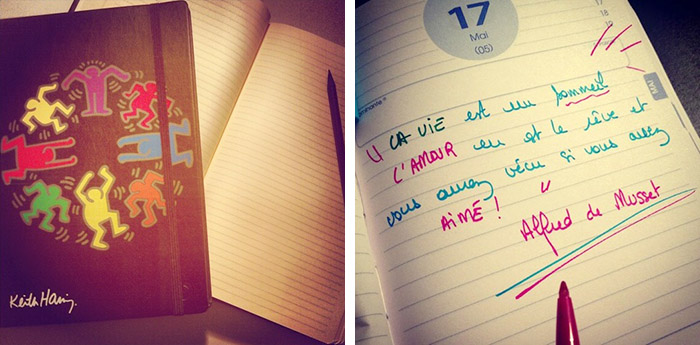 Keith Haring.
17
Mai
(05)
17
18
19
MAI
" LA VIE est un sommeil
L'AMOUR en est le rêve et
vous aurez vécu si vous avez
AIMÉ ! "
Alfred de Musset